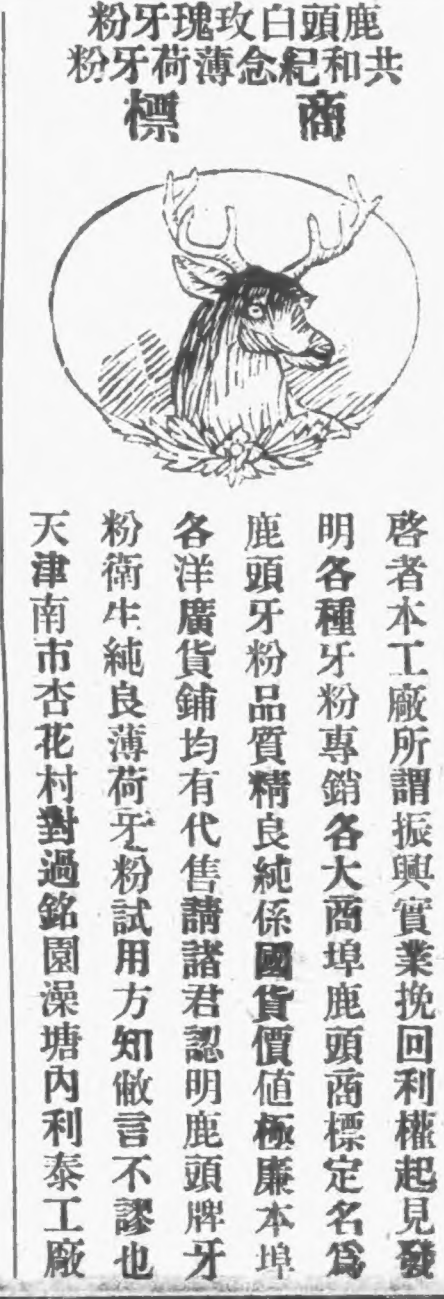 鹿頭白玫瑰牙粉
共和紀念薄荷牙粉
商標
啓者本工廠所謂振興實業挽回利權起見發
明各種牙粉專銷各大商埠鹿頭商標定名爲
鹿頭牙粉品質精良純係國貨價値極廉本埠
各洋廣貨鋪均有代售請諸君認明鹿頭牌牙
粉衛生純良薄荷牙粉試用方知敝言不謬也
天津南市杏花村對過銘園澡塘內利泰工廠